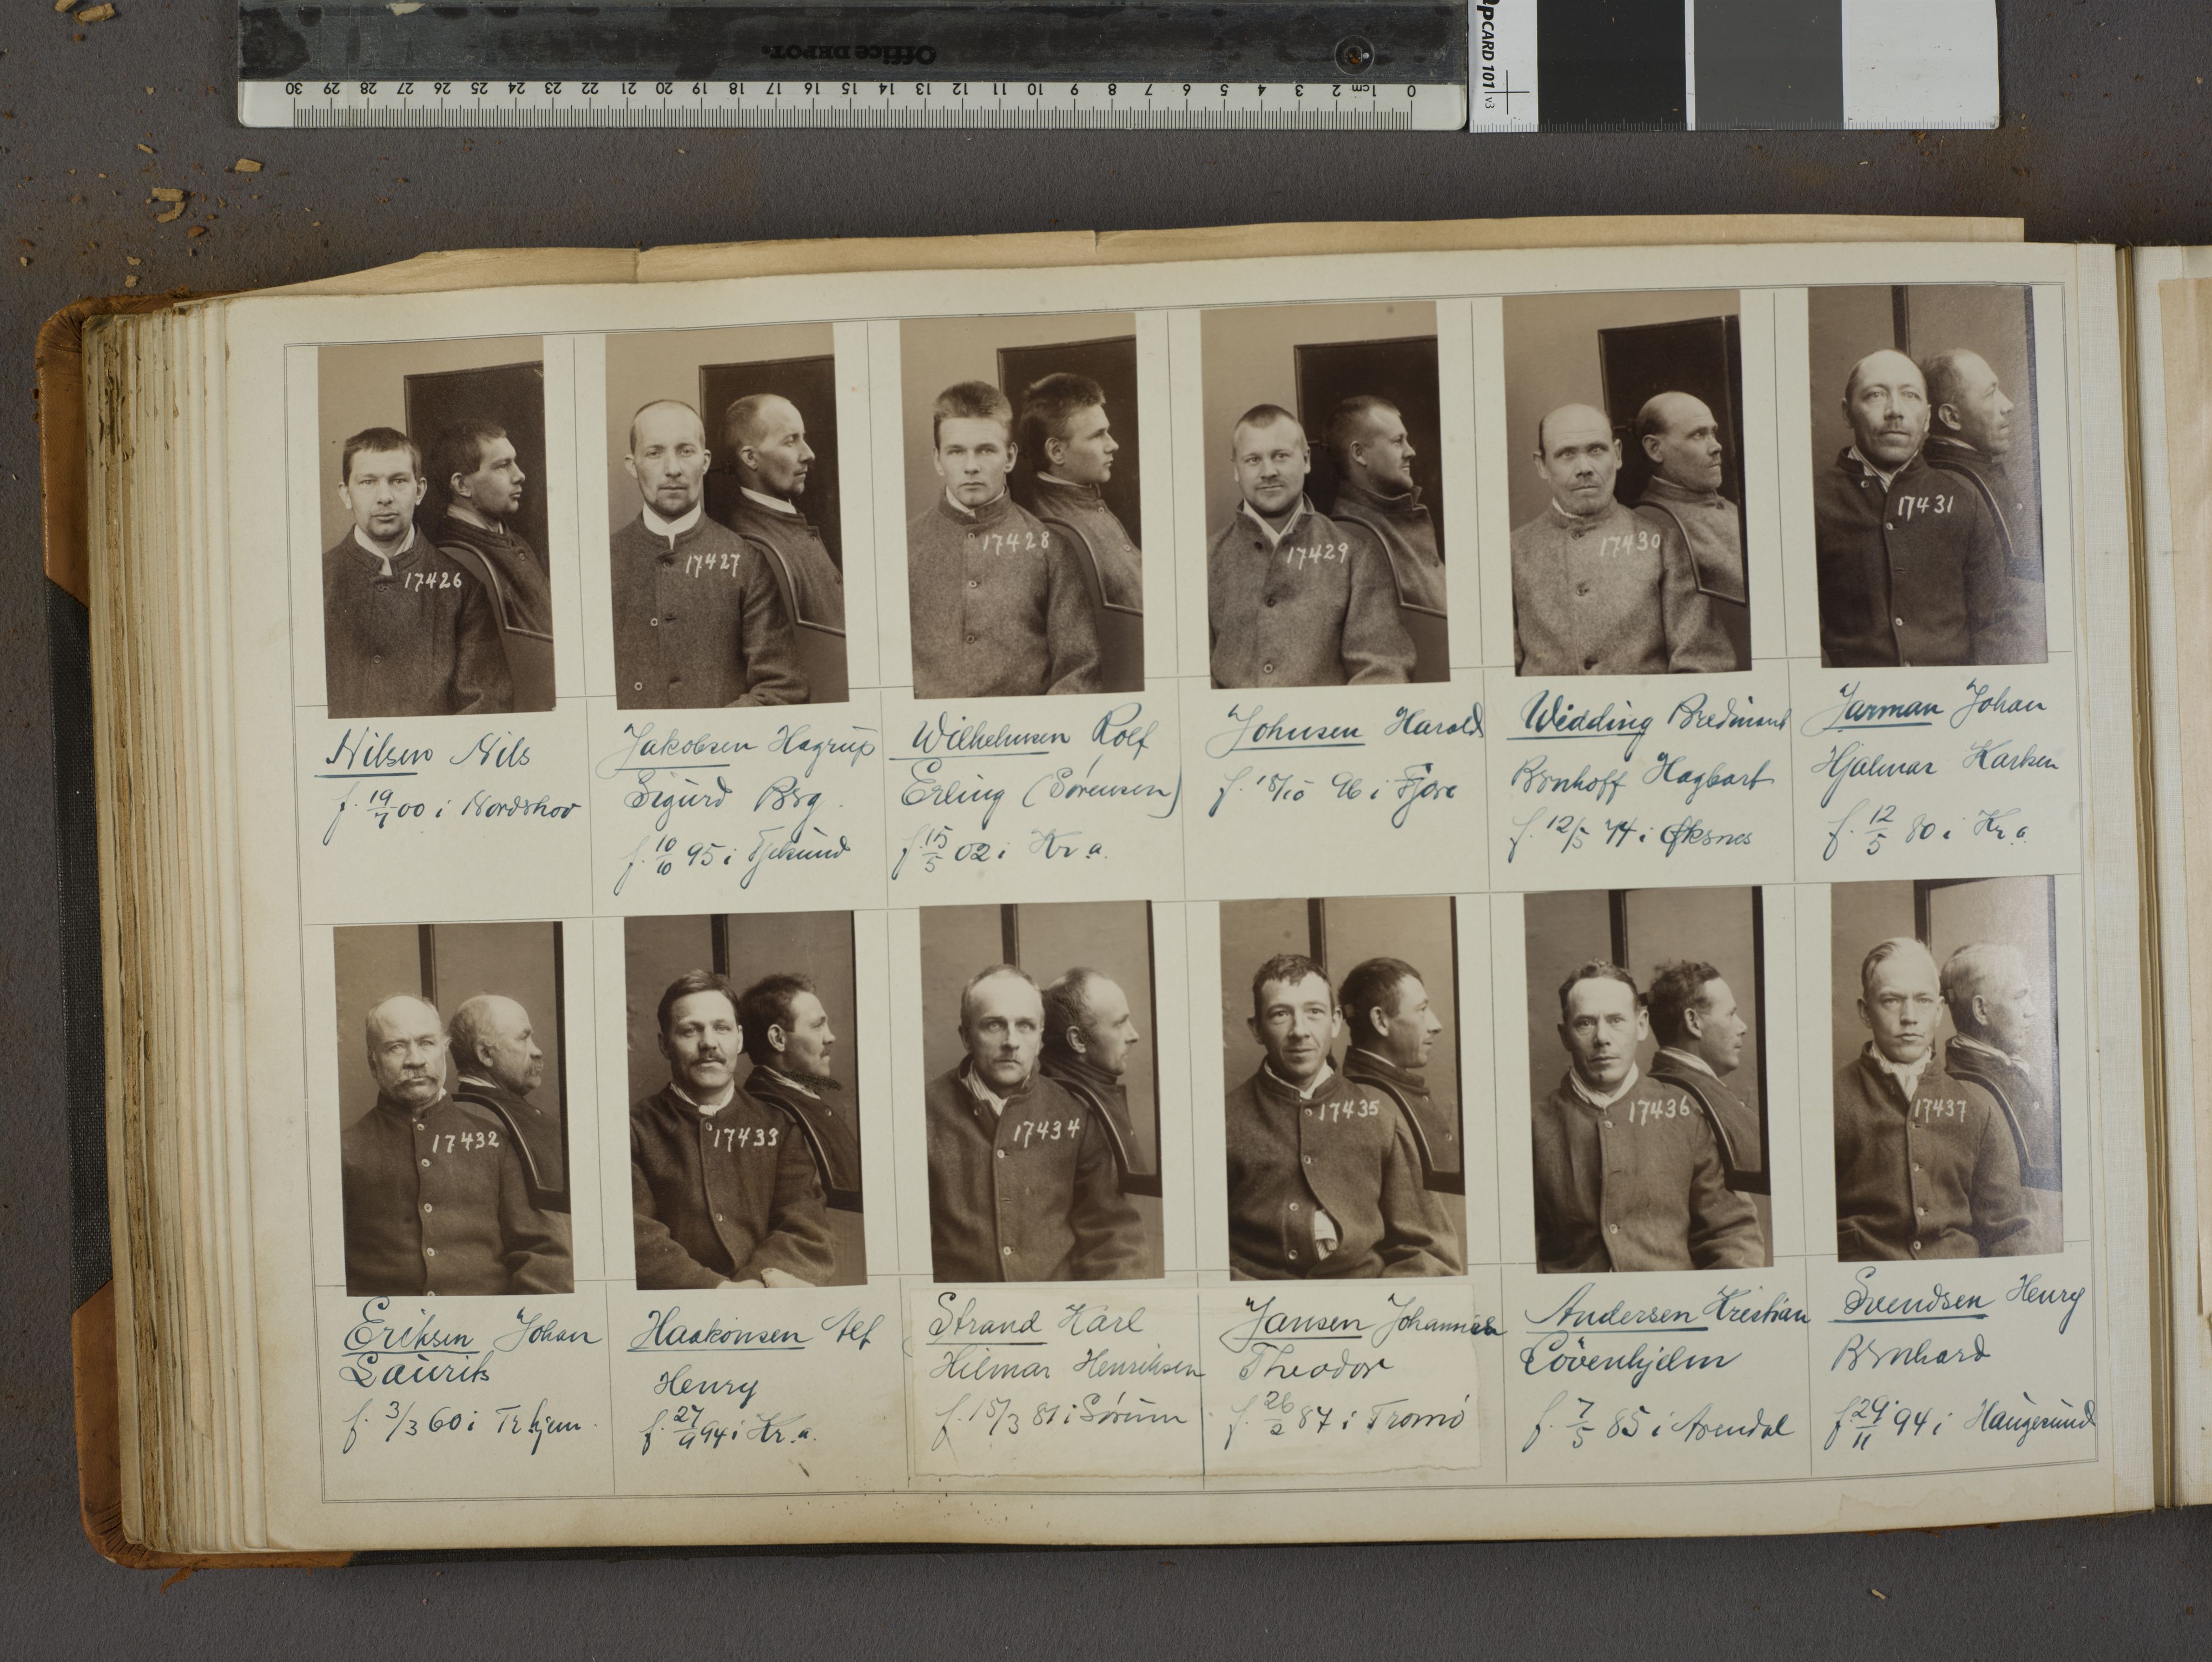 Office DEPOT
30 29 28 27 26 25 24 23 22 21 20 19 18 17 16 15 14 13 12 11 10 9 8 7 6 5 4 3 2 1cm 0
CARD 101 v3
17426
17427
17428
17429
17430
17431
Nilsen Nils
f. 19/7 00 i Nordshov
Jakobsen Hagrup
Sigurd Brg.
f. 10/10 95 i
Wilhelmsen Rolf
Erling (Sørensen)
f. 15/5 02 i Kr.a.
Johnsen Harald
f. 96 i
Wedding
Hagbart
f. 12/5 74 i Øksnes
Jarman Johan
Hjalmar Karsten
f. 12/5 80 i Kr.a.
17432
17433
17434
17435
17436
17437
Eriksen Johan
Laurits
f. 3/3 60 i Tr.hjem.
Haakonsen Alf
Henry
f. 27/9 94 i Kr.a.
Strand Karl
Hilmar Henriksen
f. 15/3 81 i Sørum
Jansen
Theodor
f. 26/2 87 i Tromsö
Andersen Kristian
Lövenhjelm
f. 7/5 85 i Arendal
Svendsen Henry
Bernhard
f. 29/11 94 i Haugesund